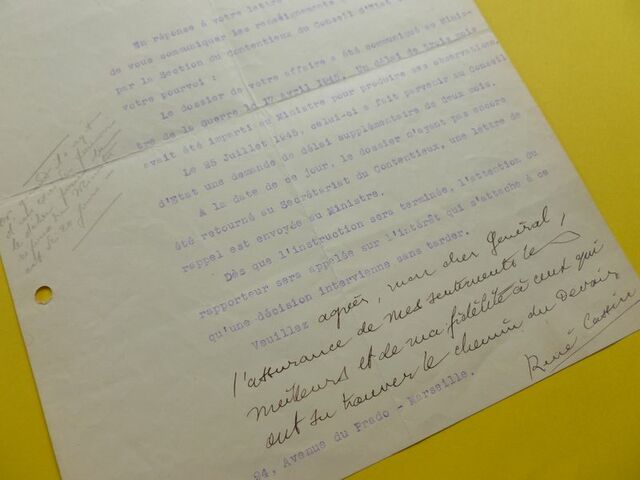 En réponse à votre lettre
de vous communiquer les renseignements
par la Section du Contentieux du Conseil d'Etat
votre pourvoi :
Le dossier de votre affaire a été communiqué au Minis-
tre de la guerre le 17 Avril 1945. Un délai de trois mois
avait été imparti au Ministre pour produire ses observations.
Le 25 Juillet 1945, celui-ci a fait parvenir au Conseil
d'Etat une demande de délai supplémentaire de deux mois.
A la date de ce jour, le dossier n'ayant pas encore
été retourné au Secrétariat du Contentieux, une lettre de
rappel est envoyée au Ministre.
Dès que l'instruction sera terminée, l'attention du
rapporteur sera appelée sur l'intérêt qui s'attache à ce
qu'une décision intervienne sans tarder.
Veuillez agréer, mon cher Général,
l'assurance de mes sentiments les
meilleurs et de ma fidélité à ceux qui
ont su trouver le chemin du Devoir
René Cassin
24, Avenue du Prado - Marseille.